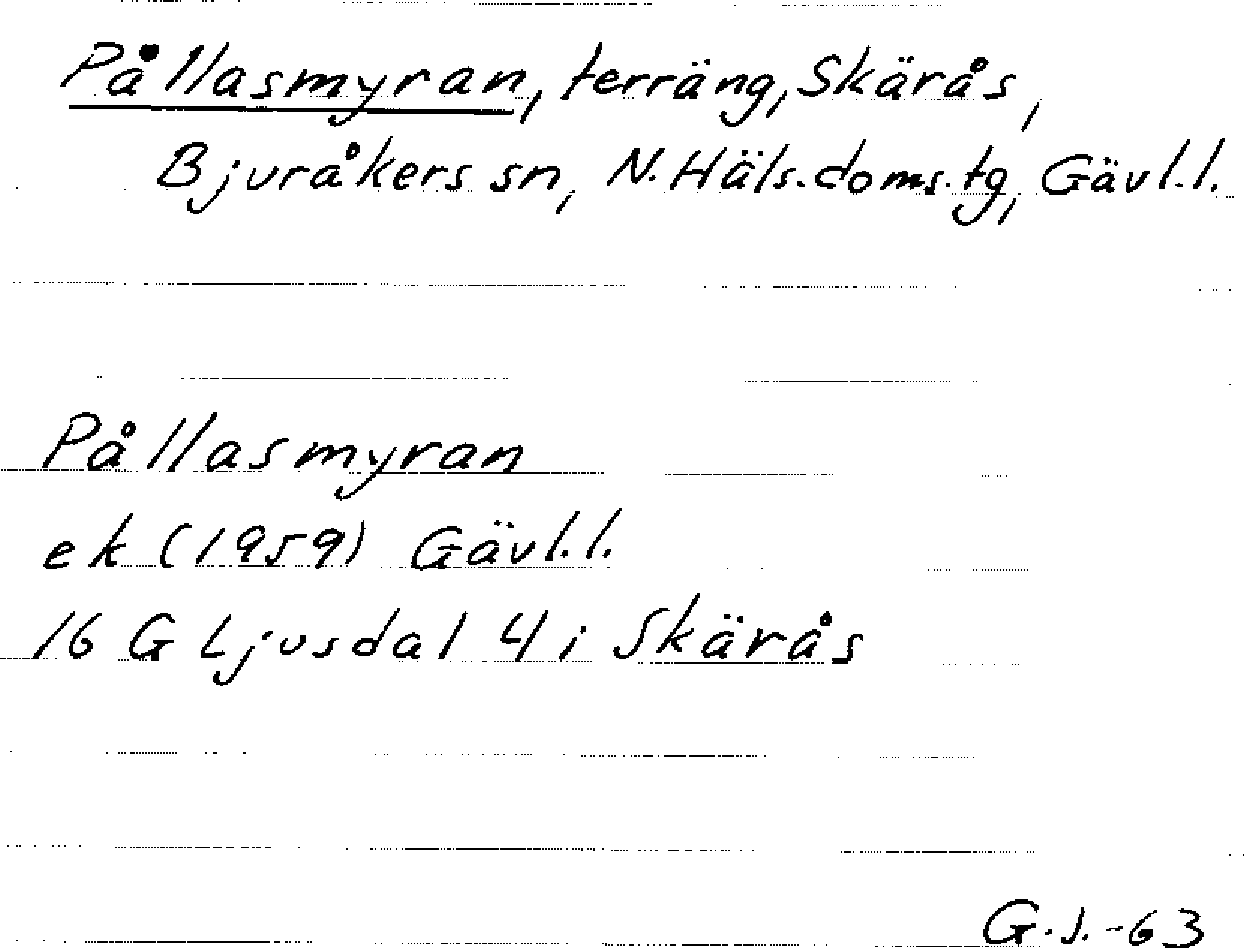 Pållasmyran, terräng, Skärås,
Bjuråkers sn, N. Häls. doms. tg, Gävl. l.
Pållasmyran
ek (1959) Gävl. l.
16 G Ljusdal 4 i Skärås
G. J. -63